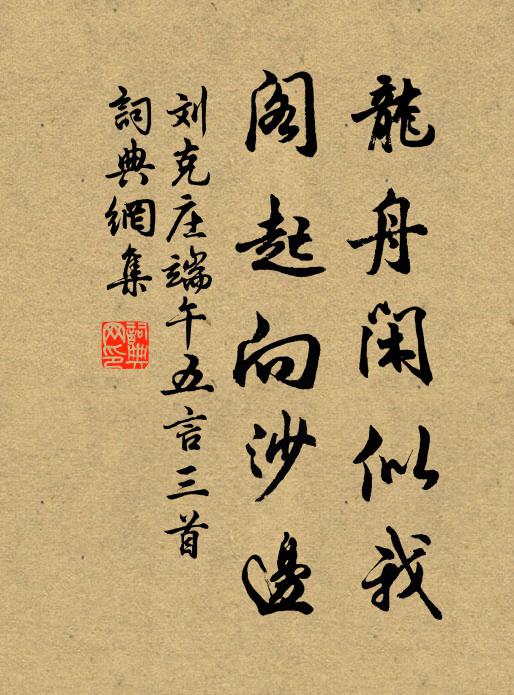 龍舟閑似我
阁起向沙邊
刘克庄端午五言三首
詞典網集
詞典网印